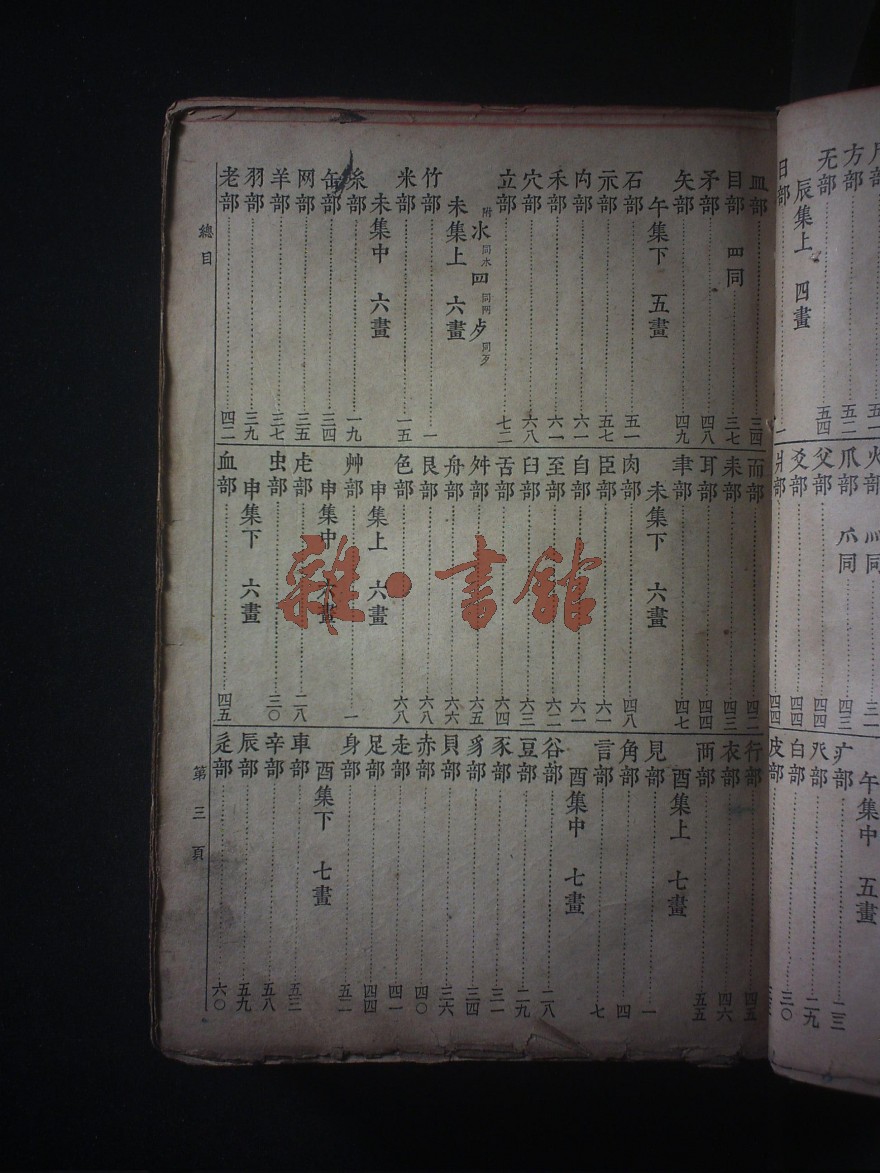 方部 五二
无部 五四
辰集上 四畫
日部 一
火部 灬同 三一
爪部 爫同 四三
父部 四四
爻部 四四
爿部 四四
午集中 五畫
疒部 二三
癶部 二九
白部 三〇
皮部
皿部 三四
目部 罒同 三七
矛部 四八
矢部 四九
午集下 五畫
石部 五一
示部 五七
禸部 六一
禾部 六一
穴部 六八
立部 七二
附 氺同水 罒同网 歺同歹
未集上 六畫
竹部 一
米部 一五
未集中 六畫
糸部 一九
缶部 三四
网部 三五
羊部 三七
羽部 三九
老部 四二
而部 四二
耒部 四三
耳部 四四
聿部 四七
未集下 六畫
肉部 四八
臣部 六一
自部 六一
至部 六二
臼部 六三
舌部 六四
舛部 六五
舟部 六六
艮部 六八
色部 六八
申集上 六畫
艸部 一
申集中 六畫
虍部 二八
虫部 三〇
申集下 六畫
血部 四五
行部 四五
衣部 四六
襾部 五五
酉集上 七畫
見部 一
角部 四
言部 七
酉集中 七畫
谷部 二八
豆部 二九
豕部 三一
豸部 三四
貝部 三六
赤部 四〇
走部 四一
足部 四四
身部 五二
酉集下 七畫
車部 五三
辛部 五八
辰部 五九
辵部 六〇
總目
第三頁
雜·書館